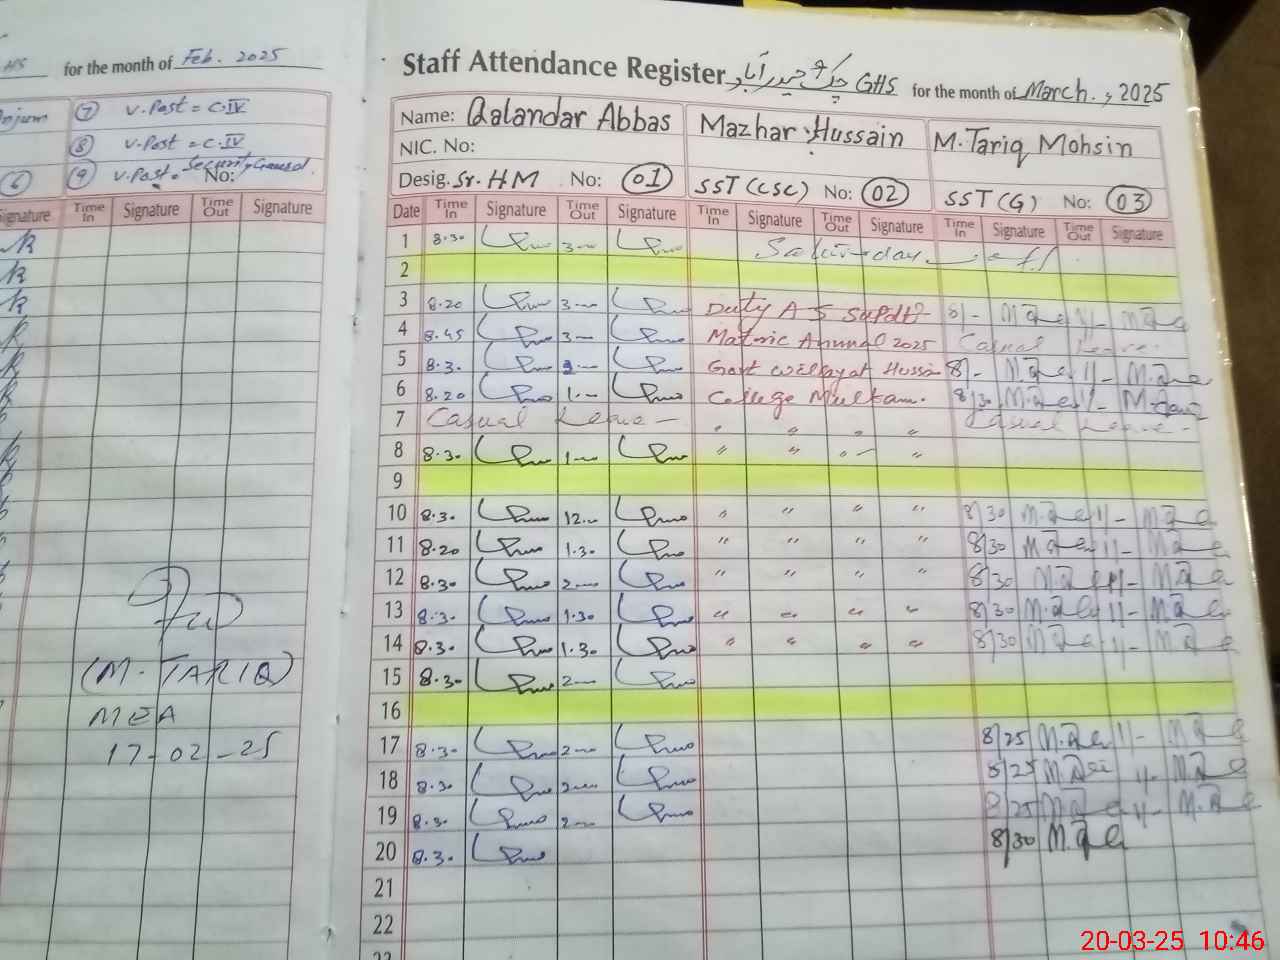 HS for the month of Feb. 2025
⑦ V.Post = C.IV
⑧ V.Post = C.IV
⑥ ⑨ V.Post = Security Guard. No:
Signature Time In Signature Time Out Signature
(M. TARIQ)
MEA
17-02-25
Staff Attendance Register GHS for the month of March., 2025
Name: Qalandar Abbas Mazhar Hussain M. Tariq Mohsin
NIC. No:
Desig. Sr. HM No: 01 SST (CSC) No: 02 SST (G) No: 03
Date Time In Signature Time Out Signature Time In Signature Time Out Signature Time In Signature Time Out Signature
1 8.30 3-
2
3 8.20 3- Duty A S Supdt 8/-
4 8.45 3- Matric Annual 2025 Casual Leave
5 8.3. Govt Willayat Hussain 8/-
6 8.20 1- College Multan. 8/30
7 Casual Leave - " " " " Casual Leave -
8 8.3. 1- " " " "
9
10 8.3. 12- " " " " 8/30
11 8.20 1.30 " " " " 8/30
12 8.30 2- " " " " 8/30
13 8.3. 1.30 " " " " 8/30
14 8.3. 1.30 " " " " 8/30
15 8.3. 2-
16
17 8.3. 2- 8/25
18 8.30 2- 8/25
19 8.3. 2- 8/25
20 8.3. 8/30
21
22
23
20-03-25 10:46